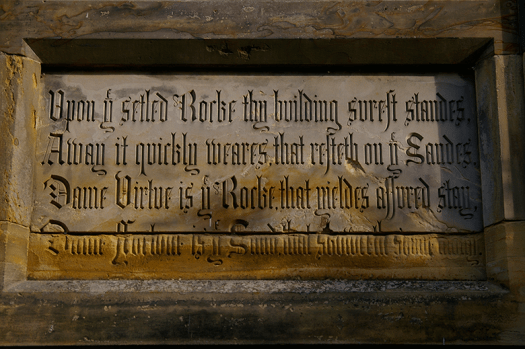 Vpon yͤ setled Rocke thy building surest standes,
Away it quickly weares, that resteth on yͤ Sandes.
Dame Virtve is yͤ Rocke, that yieldes assvred stay,
Dame Fortvne is yͤ Sand, that